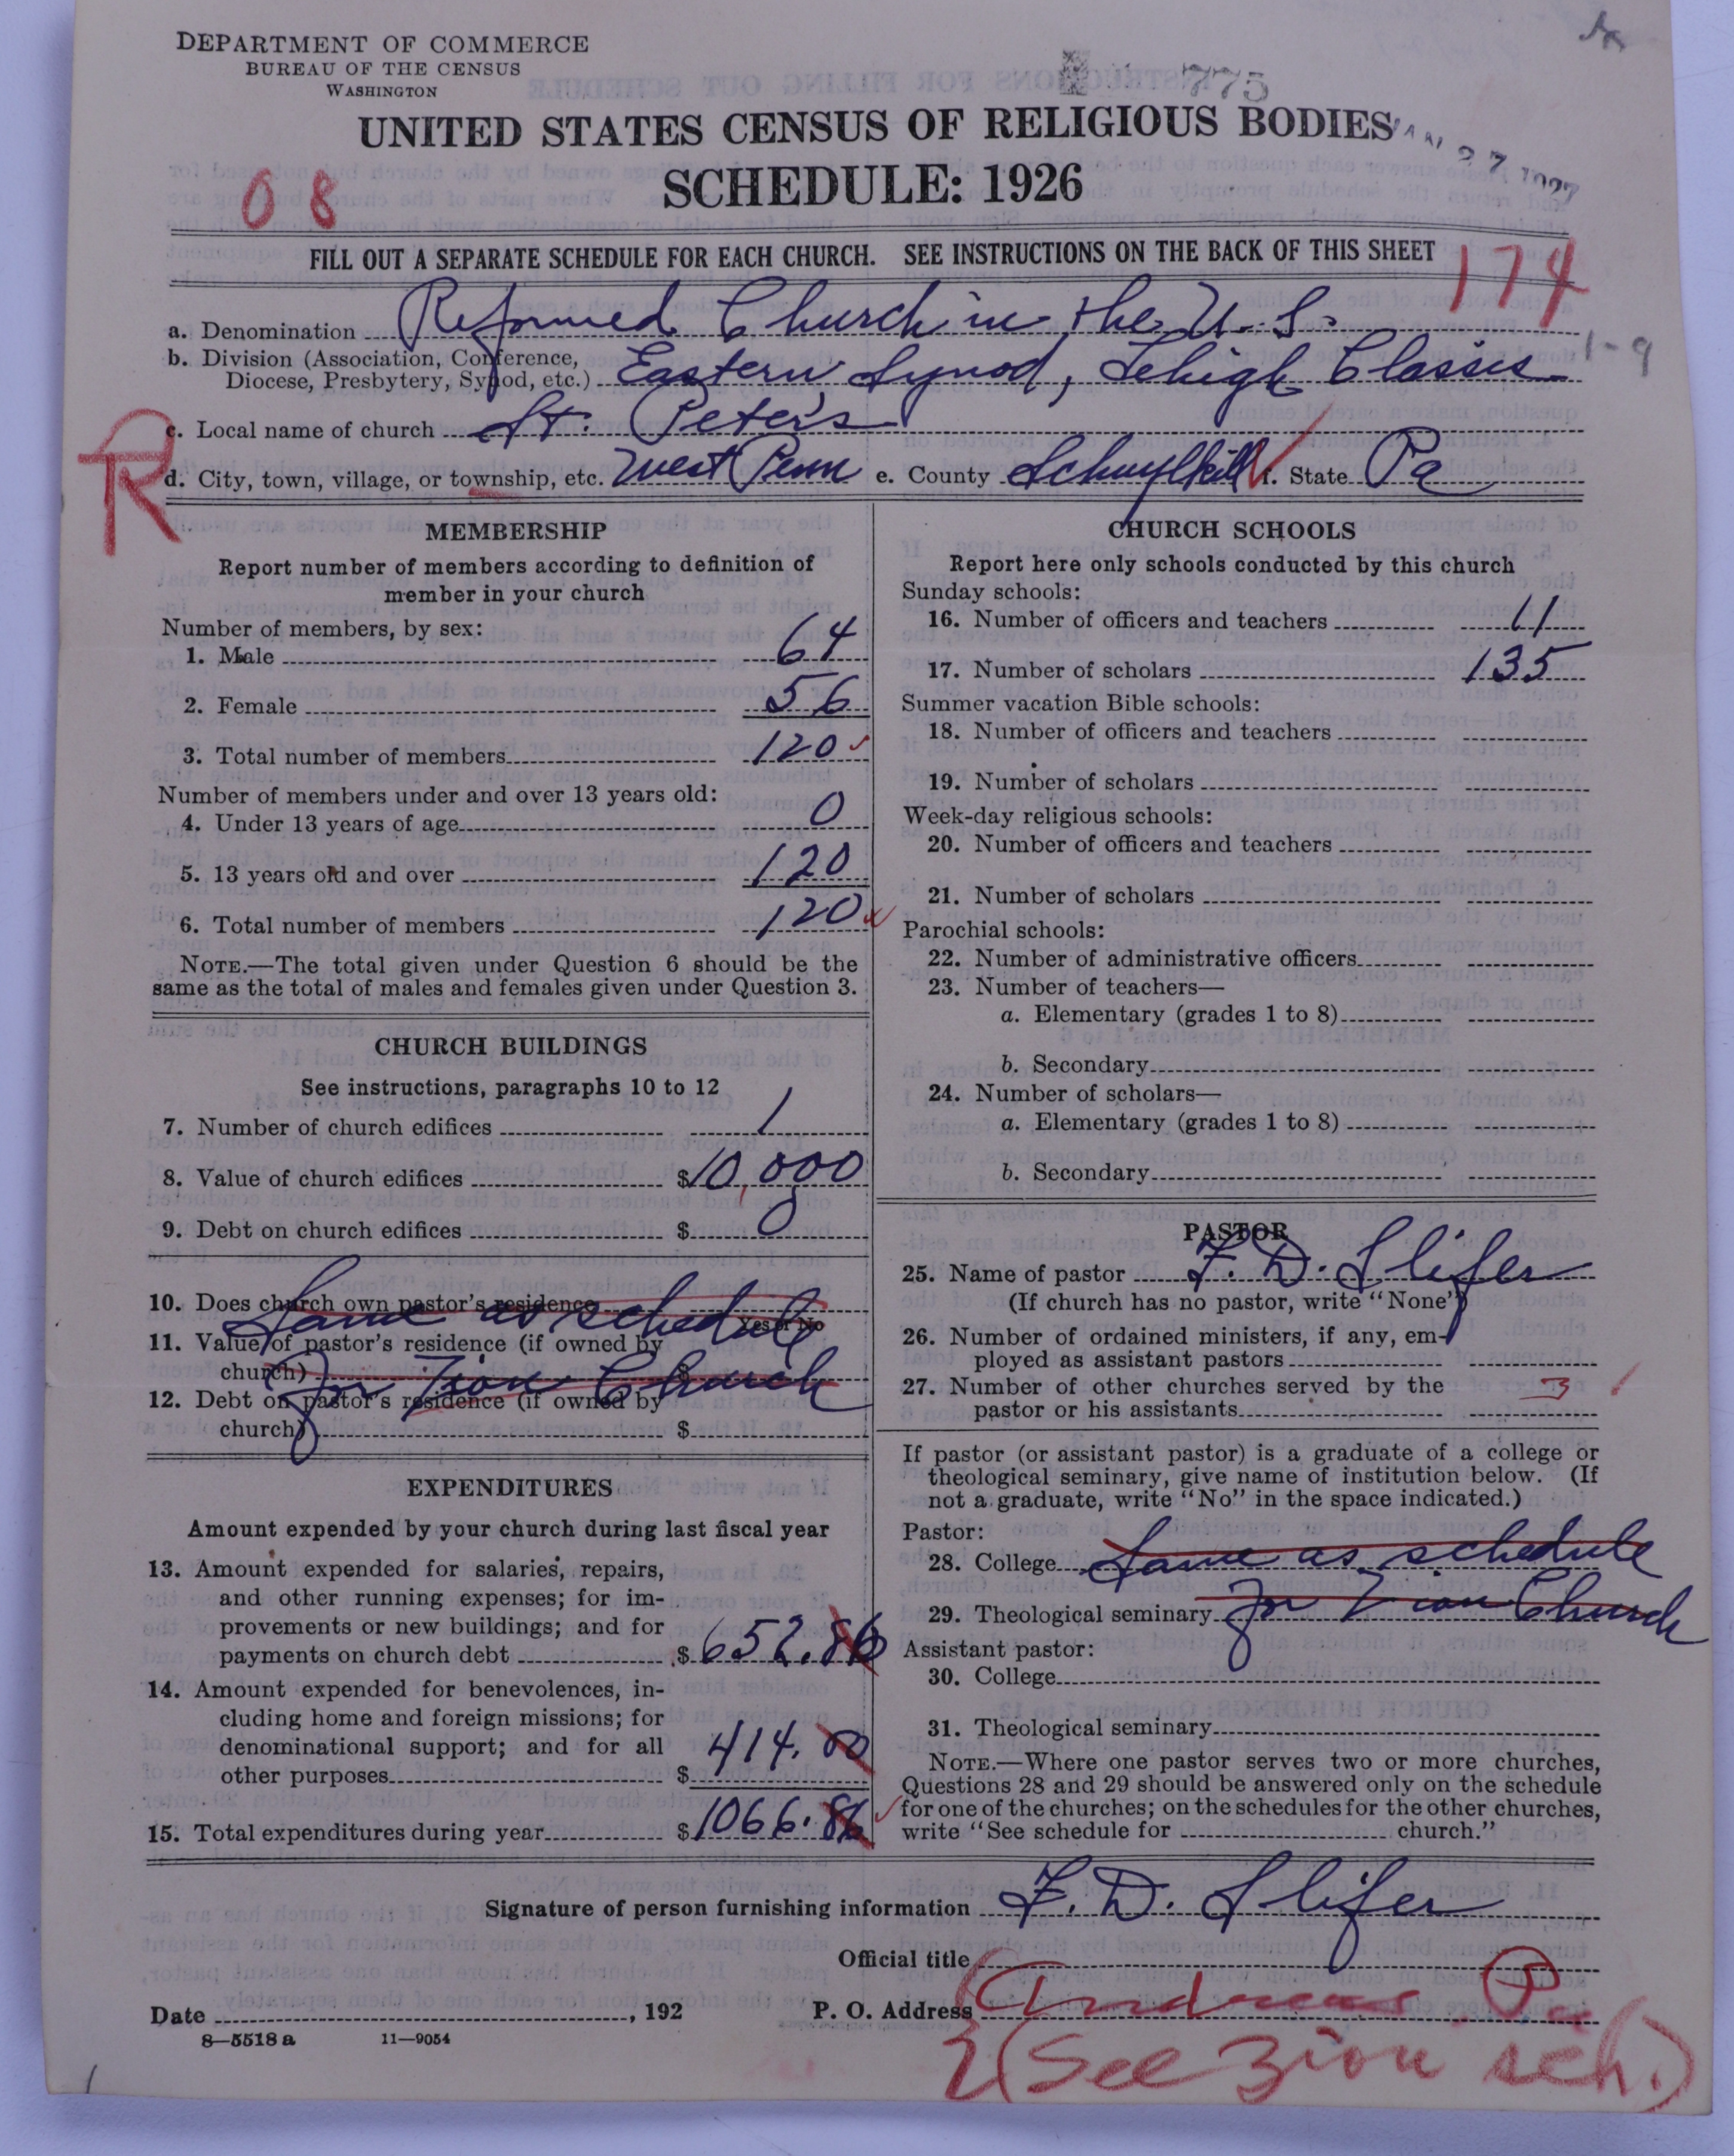 DEPARTMENT OF COMMERCE
BUREAU OF THE CENSUS
WASHINGTON
775
UNITED STATES CENSUS OF RELIGIOUS BODIES
JAN 27 1927
SCHEDULE: 1926
08
FILL OUT A SEPARATE SCHEDULE FOR EACH CHURCH. SEE INSTRUCTIONS ON THE BACK OF THIS SHEET
174
a. Denomination Reformed Church in the U.S.
b. Division (Association, Conference,
Diocese, Presbytery, Synod, etc.) Eastern Synod, Lehigh Classis
1-9
R
c. Local name of church St. Peter's
d. City, town, village, or township, etc. West Penn e. County Schuylkill f. State Pa
MEMBERSHIP
Report number of members according to definition of
member in your church
Number of members, by sex:
1. Male 64
2. Female 56
3. Total number of members 120
Number of members under and over 13 years old:
4. Under 13 years of age 0
5. 13 years old and over 120
6. Total number of members 120
NOTE.—The total given under Question 6 should be the
same as the total of males and females given under Question 3.
CHURCH BUILDINGS
See instructions, paragraphs 10 to 12
7. Number of church edifices 1
8. Value of church edifices $10,000
9. Debt on church edifices $ 0
10. Does church own pastor's residence
Yes or No
Same as schedule
11. Value of pastor's residence (if owned by
church) $
for Zion Church
12. Debt on pastor's residence (if owned by
church) $
EXPENDITURES
Amount expended by your church during last fiscal year
13. Amount expended for salaries, repairs,
and other running expenses; for im-
provements or new buildings; and for
payments on church debt $652.86
14. Amount expended for benevolences, in-
cluding home and foreign missions; for
denominational support; and for all
other purposes $414.00
15. Total expenditures during year $1066.86
CHURCH SCHOOLS
Report here only schools conducted by this church
Sunday schools:
16. Number of officers and teachers 11
17. Number of scholars 135
Summer vacation Bible schools:
18. Number of officers and teachers
19. Number of scholars
Week-day religious schools:
20. Number of officers and teachers
21. Number of scholars
Parochial schools:
22. Number of administrative officers
23. Number of teachers—
a. Elementary (grades 1 to 8)
b. Secondary
24. Number of scholars—
a. Elementary (grades 1 to 8)
b. Secondary
PASTOR
25. Name of pastor F. D. Slifer
(If church has no pastor, write "None")
26. Number of ordained ministers, if any, em-
ployed as assistant pastors
27. Number of other churches served by the
pastor or his assistants 3
If pastor (or assistant pastor) is a graduate of a college or
theological seminary, give name of institution below. (If
not a graduate, write "No" in the space indicated.)
Pastor:
28. College Same as schedule
29. Theological seminary for Zion Church
Assistant pastor:
30. College
31. Theological seminary
NOTE.—Where one pastor serves two or more churches,
Questions 28 and 29 should be answered only on the schedule
for one of the churches; on the schedules for the other churches,
write "See schedule for church."
Signature of person furnishing information F. D. Slifer
Official title
Date , 192 P. O. Address Andreas Pa
8—5518 a 11—9054
2 (See Zion sch.)